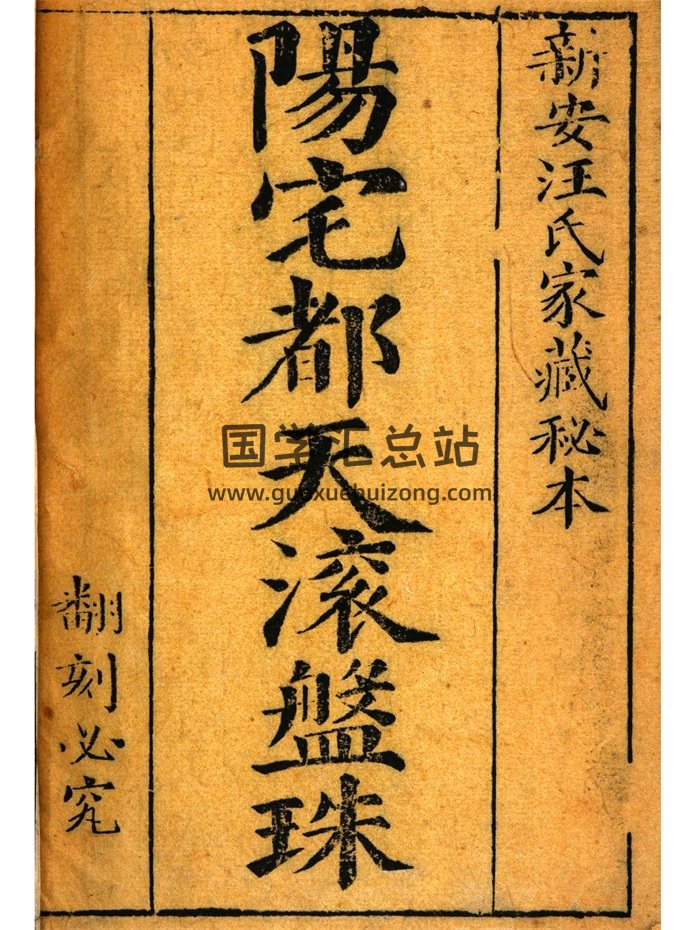 新安汪氏家藏秘本
陽宅都天滚盤珠
翻刻必究
国学汇总站
www.guoxuehuizong.com